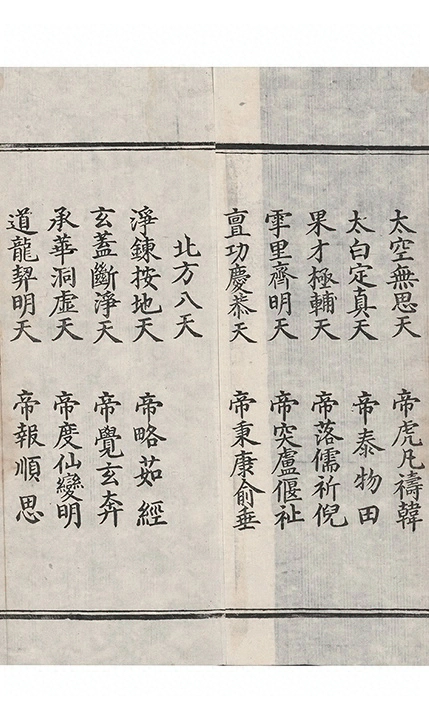 太空無思天　帝虎凡禱韓
太白定真天　帝泰物田
果才極輔天　帝落儒祈倪
雩里齊明天　帝突盧偃祉
亶功慶恭天　帝秉康俞垂
北方八天
淨鍊按地天　帝略茹經
玄蓋斷淨天　帝覺玄奔
承華洞虛天　帝度仙變明
道龍契明天　帝報順思